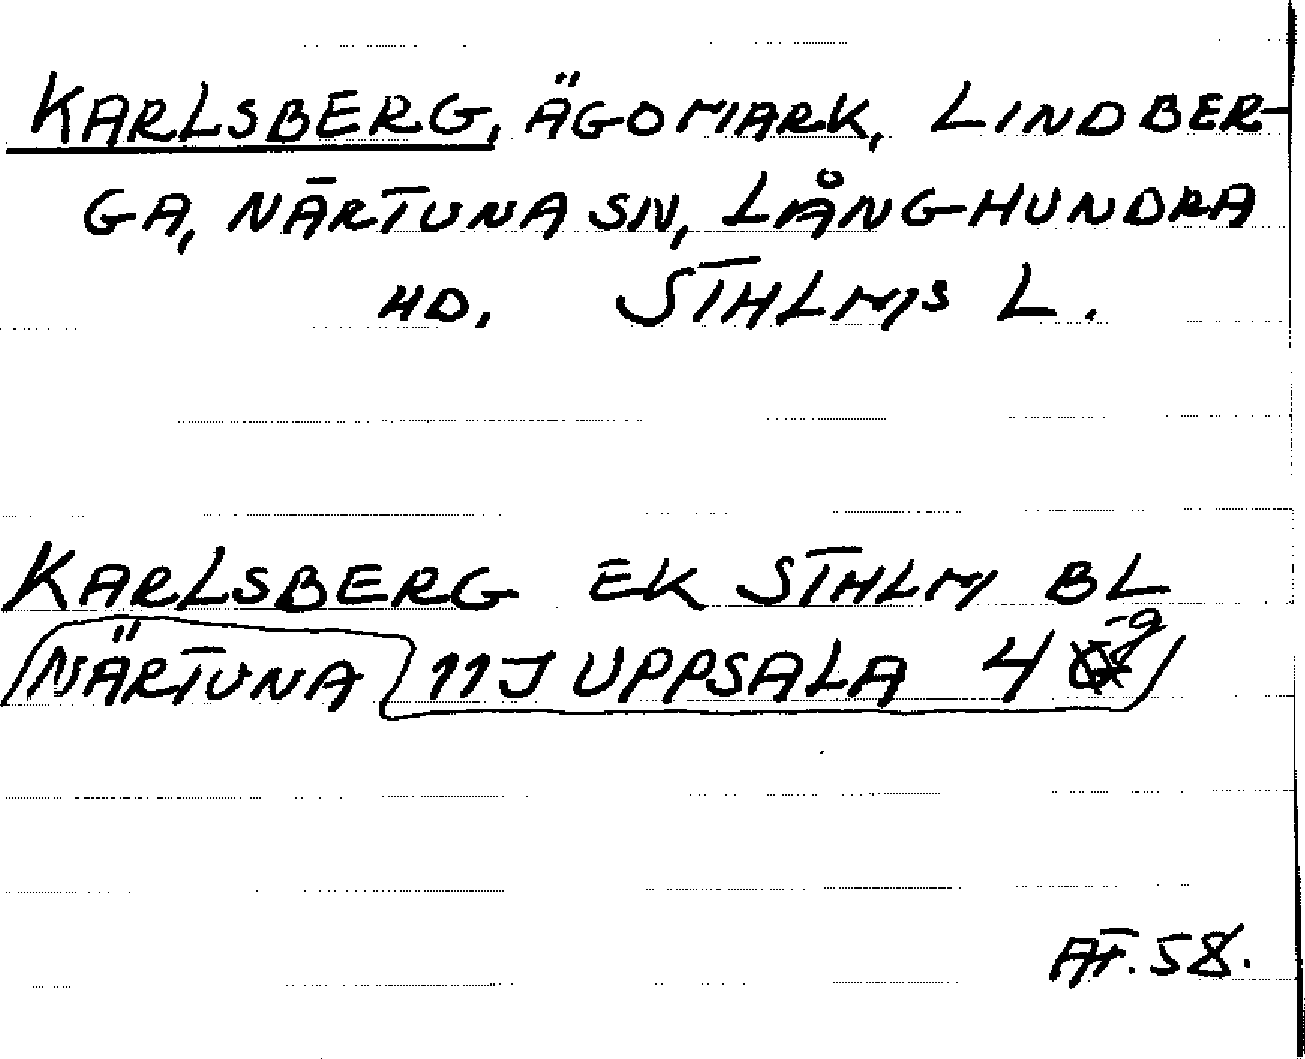 KARLSBERG, ÄGOMARK, LINDBER-
GA, NÄRTUNA SN, LÅNGHUNDRA
HD. STHLMS L.
KARLSBERG EK STHLM BL
NÄRTUNA 11J UPPSALA 4
AF. 58.